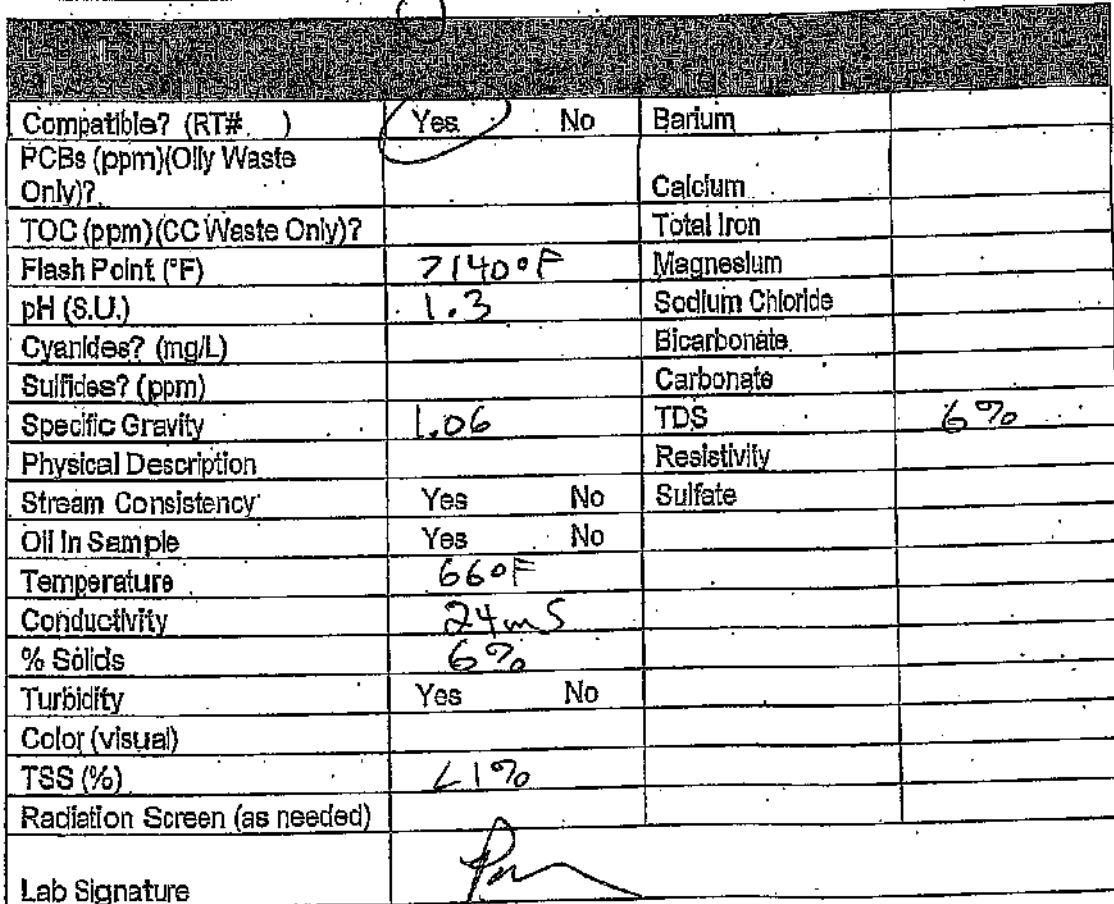 Compatible? (RT# ) Yes No Barium
PCBs (ppm)(Oily Waste
Only)? Calcium
TOC (ppm)(CC Waste Only)? Total Iron
Flash Point (°F) >140°F Magnesium
pH (S.U.) 1.3 Sodium Chloride
Cyanides? (mg/L) Bicarbonate
Sulfides? (ppm) Carbonate
Specific Gravity 1.06 TDS 6%
Physical Description Resistivity
Stream Consistency Yes No Sulfate
Oil In Sample Yes No
Temperature 66°F
Conductivity 24mS
% Solids 6%
Turbidity Yes No
Color (visual)
TSS (%) <1%
Radiation Screen (as needed)
Lab Signature